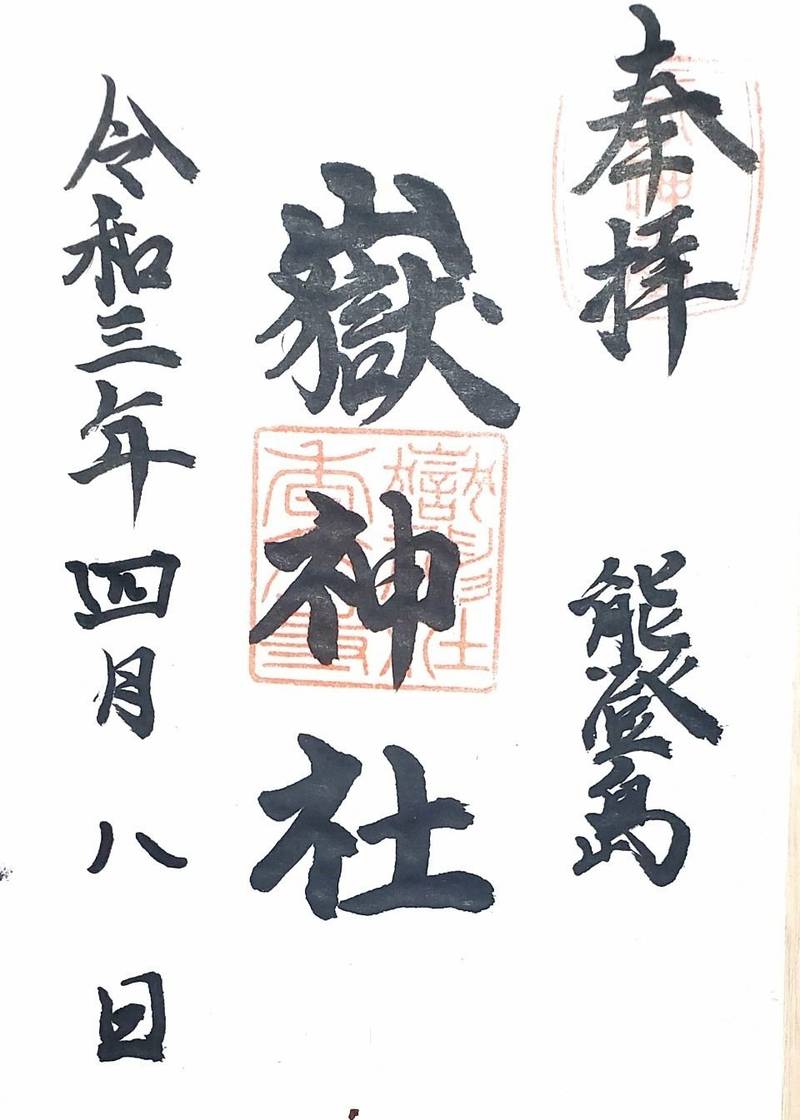 奉拝
能登島
嶽神社
令和三年四月八日